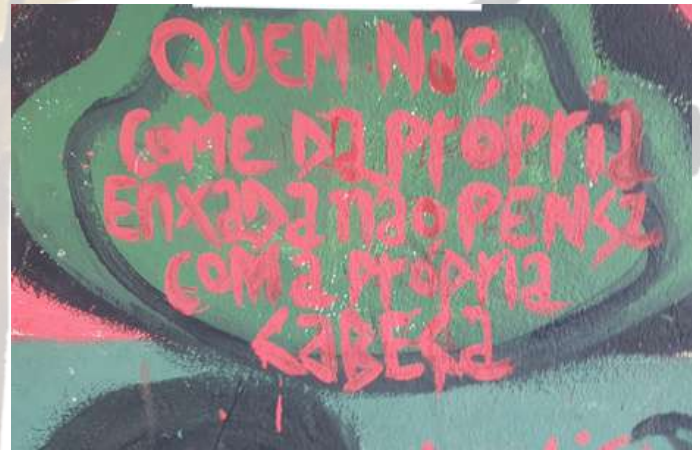 QUEM Não
COME DA própria
ENXADA não PENSA
COM a própria
CABEÇA